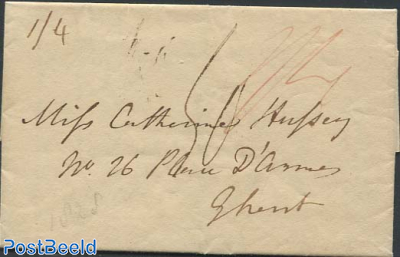 1/4
Miss Catherine Hussey
No. 26 Place D'Armes
Ghent
PostBeeld